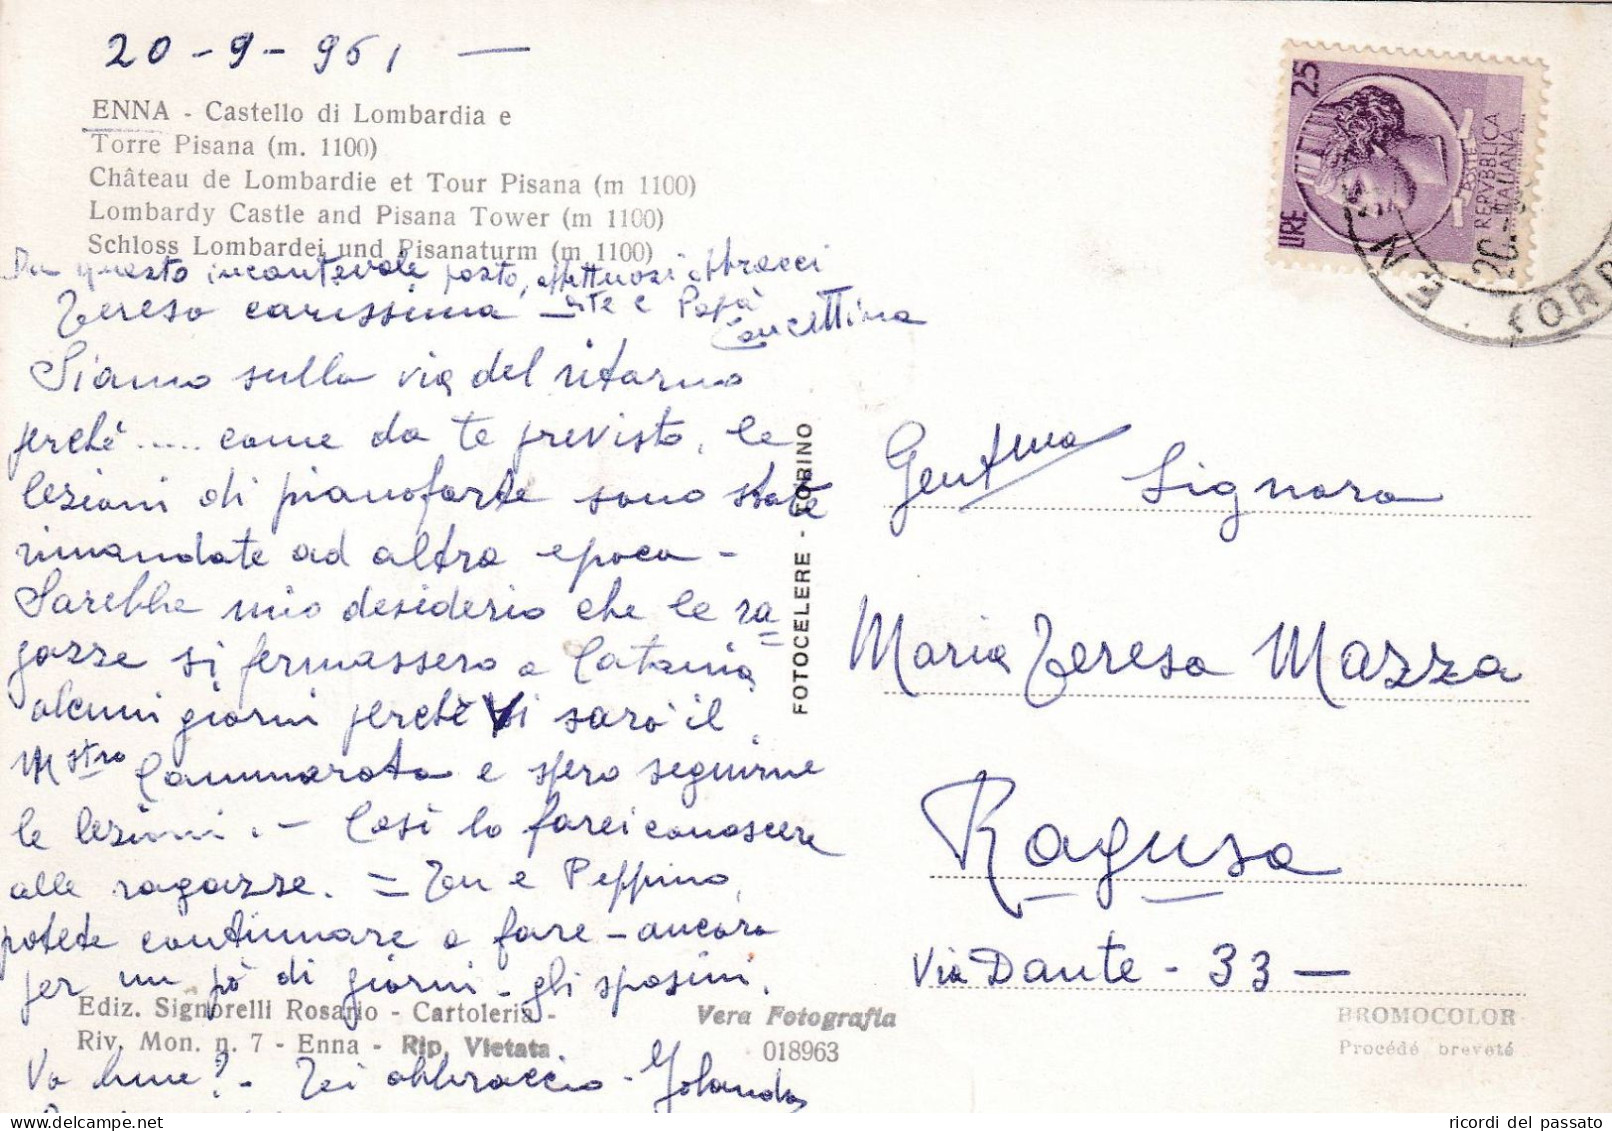 20-9-961 —
ENNA - Castello di Lombardia e
Torre Pisana (m. 1100)
Château de Lombardie et Tour Pisana (m 1100)
Lombardy Castle and Pisana Tower (m 1100)
Schloss Lombardei und Pisanaturm (m 1100)
Da questo incantevole posto, affettuosi abbracci
e Papà
Concettina
Teresa carissima
Siamo sulla via del ritorno
perchè ..... come da te previsto, le
lezioni di pianoforte sono state
rimandate ad altra epoca -
Sarebbe mio desiderio che le ra=
gazze si fermassero a Catania
alcuni giorni perchè Vi sarà il
Mstro Cammarata e spero seguirne
le lezioni. - Così lo farei conoscere
alle ragazze. = Tu e Peppino,
potete continuare a fare - ancora
per un pò di giorni - gli sposini.
Ediz. Signorelli Rosario - Cartoleria -
Riv. Mon. n. 7 - Enna - Rip. Vietata
Va bene? - Ti abbraccio - Yolanda
Vera Fotografia
018963
FOTOCELERE - TORINO
LIRE 25
POSTE
REPVBBLICA
ITALIANA
20.
Gent.ma Signora
Maria Teresa Mazza
Ragusa
Via Dante - 33 —
BROMOCOLOR
Procédé breveté
ricordi del passato